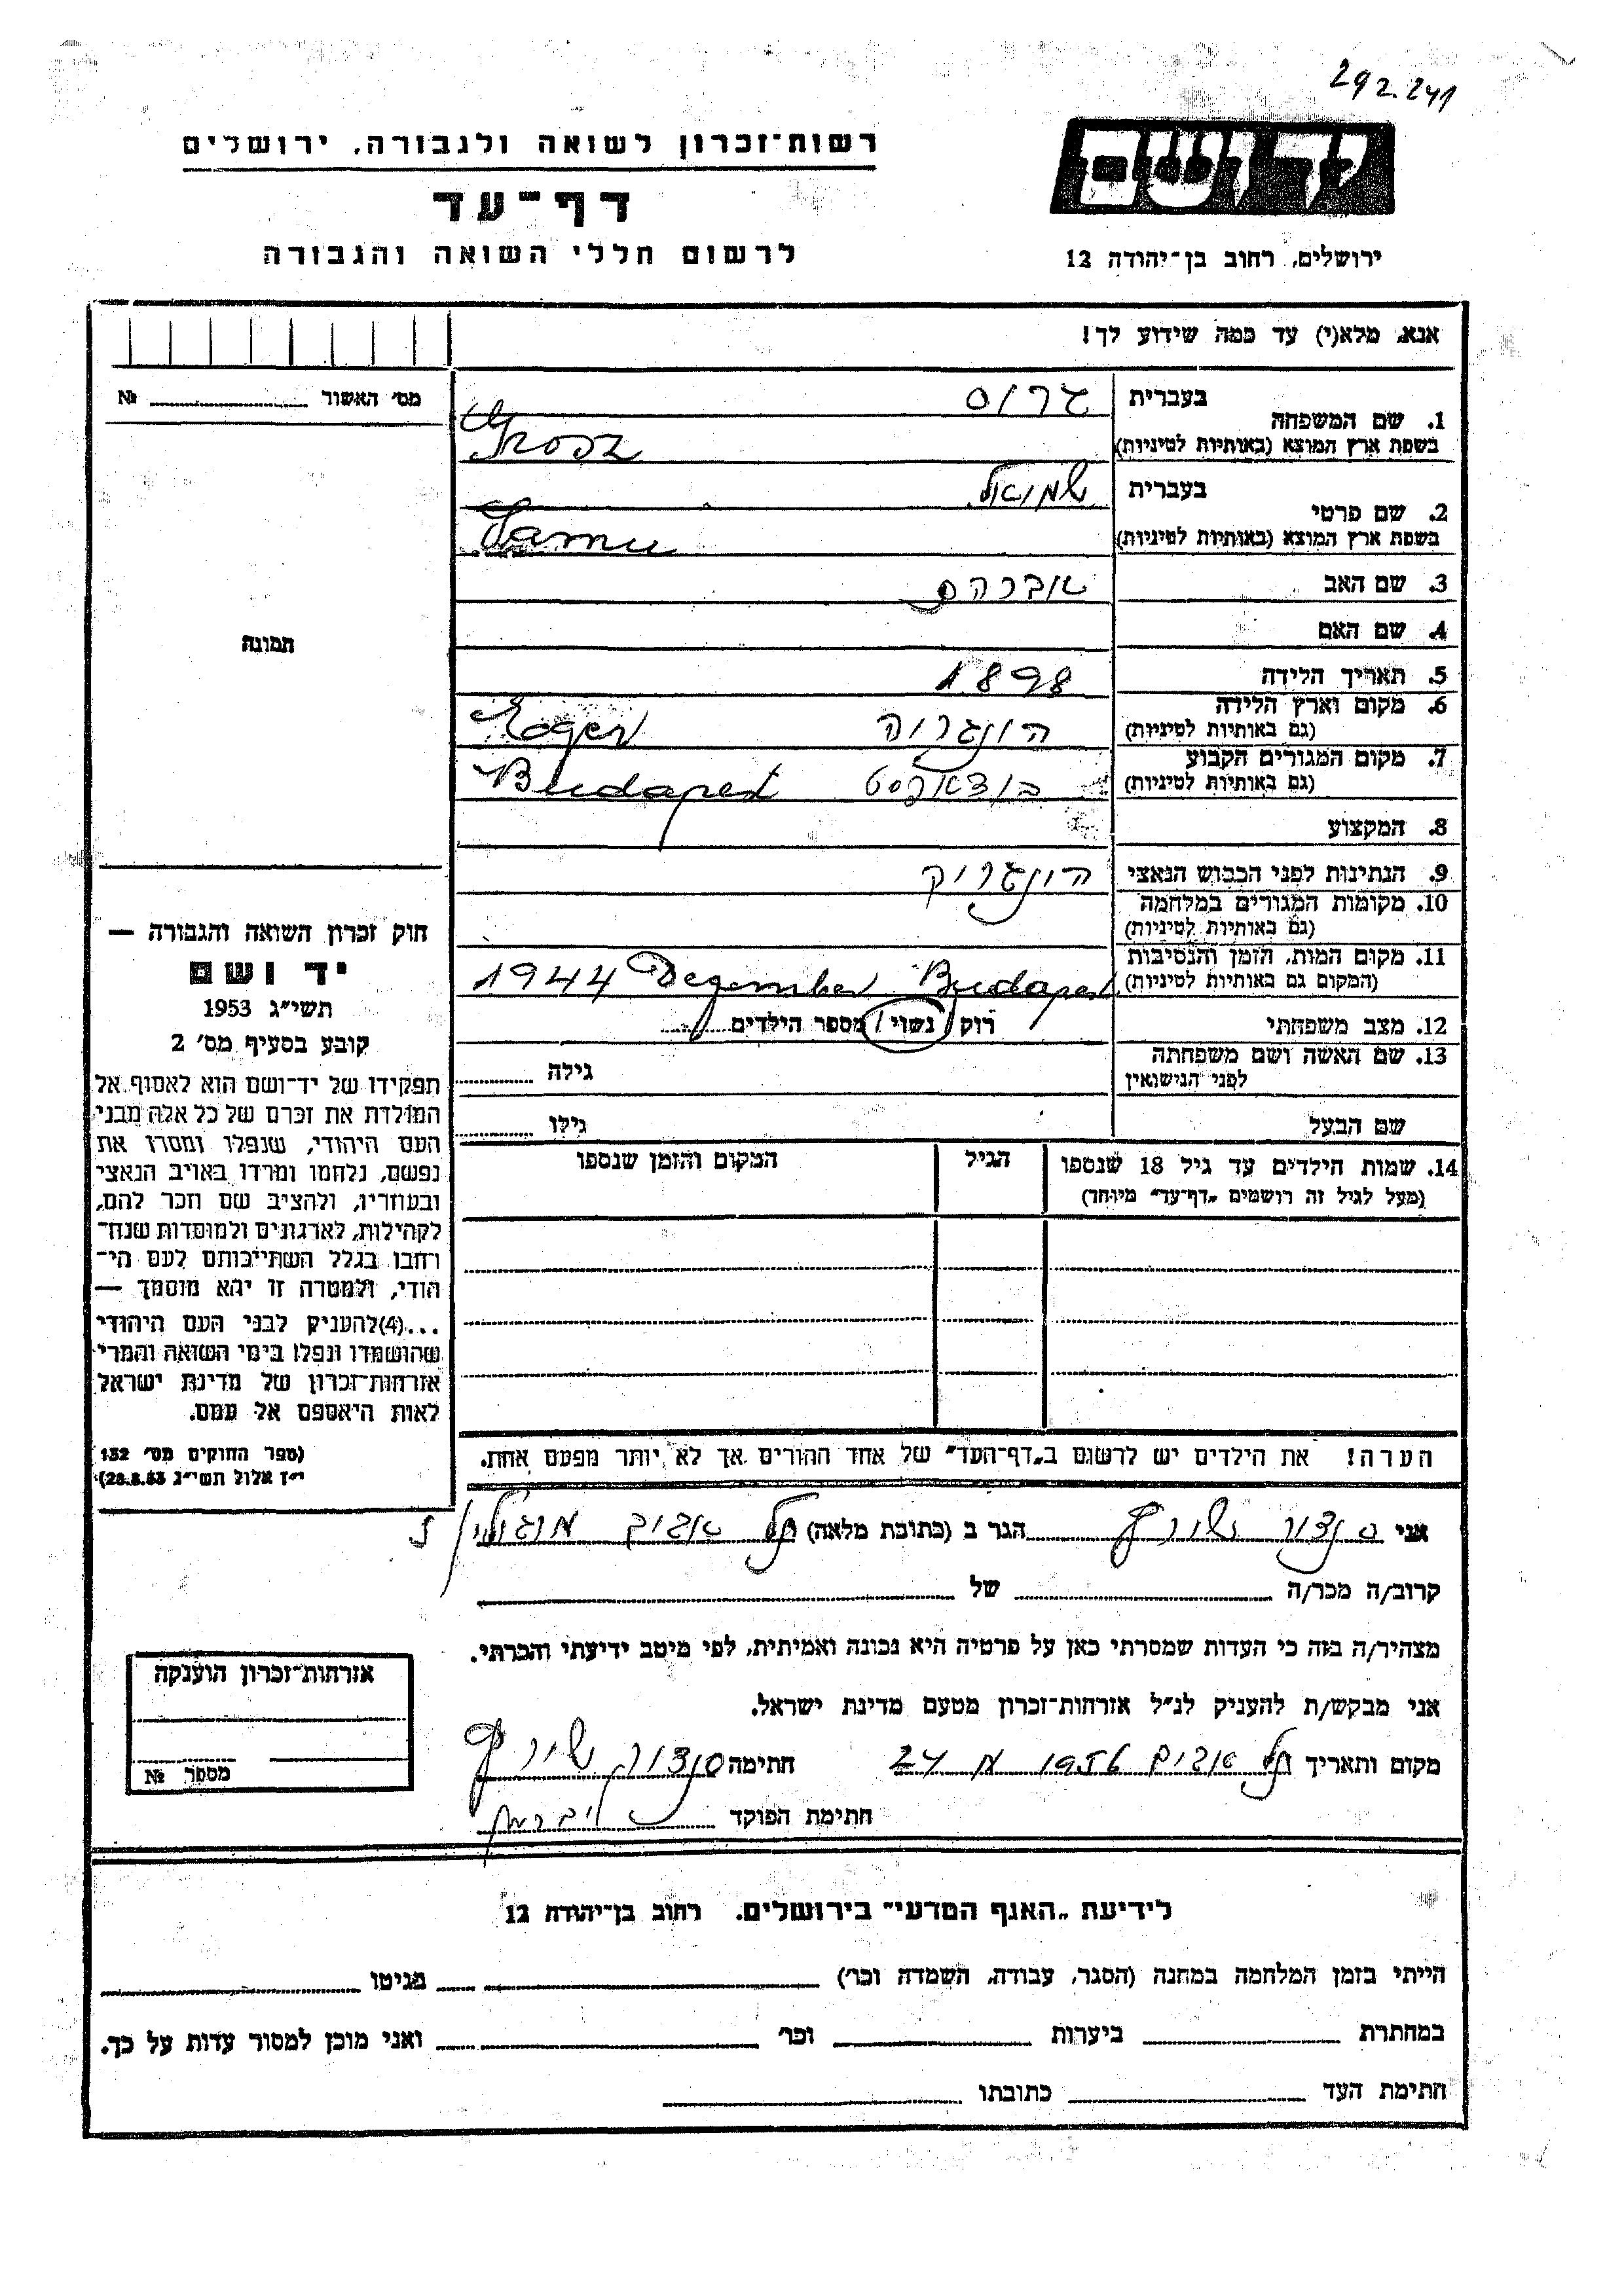 292.241
יד ושם
רשות־זכרון לשואה ולגבורה, ירושלים
דף־עד
לרשום חללי השואה והגבורה
ירושלים, רחוב בן־יהודה 12
אנא, מלא(י) עד כמה שידוע לך!
מס׳ האשור № 
1. שם המשפחה
בעברית גרוס
בשפת ארץ המוצא (באותיות לטיניות) Grosz
2. שם פרטי
בעברית שמואל
בשפת ארץ המוצא (באותיות לטיניות) Samu
3. שם האב אברהם
4. שם האם
5. תאריך הלידה 1898
6. מקום וארץ הלידה הונגריה
(גם באותיות לטיניות)
7. מקום המגורים הקבוע בודאפסט Budapest
(גם באותיות לטיניות)
8. המקצוע
9. הנתינות לפני הכבוש הנאצי
10. מקומות המגורים במלחמה
(גם באותיות לטיניות)
11. מקום המות, הזמן והנסיבות 1944 Budapest
(המקום גם באותיות לטיניות)
12. מצב משפחתי רוק / נשוי / מספר הילדים
13. שם האשה ושם משפחתה גילה
לפני הנישואין
שם הבעל גילו
14. שמות הילדים עד גיל 18 שנספו הגיל המקום והזמן שנספו
(מעל לגיל זה רושמים „דף־עד״ מיוחד)
הערה! את הילדים יש לרשום ב„דף־העד״ של אחד ההורים אך לא יותר מפעם אחת.
תמונה
חוק זכרון השואה והגבורה —
יד ושם
תשי״ג 1953
קובע בסעיף מס׳ 2
תפקידו של יד־ושם הוא לאסוף אל
המולדת את זכרם של כל אלה מבני
העם היהודי, שנפלו ומסרו את
נפשם, נלחמו ומרדו באויב הנאצי
ובעוזריו, ולהציב שם וזכר להם,
לקהילות, לארגונים ולמוסדות שנח־
רחבו בגלל השתייכותם לעם הי־
הודי, ולמטרה זו יהא מוסמך —
...(4)להעניק לבני העם היהודי
שהושמדו ונפלו בימי השואה והמרי
אזרחות־זכרון של מדינת ישראל
לאות היאספם אל עמם.
(ספר החוקים מס׳ 132
י״ז אלול תשי״ג 28.8.53)
אני סנדור הגר ב (כתובת מלאה) תל אביב
קרוב/ה מכר/ה של
מצהיר/ה בזה כי העדות שמסרתי כאן על פרטיה היא נכונה ואמיתית, לפי מיטב ידיעתי והכרתי.
אני מבקש/ת להעניק לנ״ל אזרחות־זכרון מטעם מדינת ישראל.
מקום ותאריך תל אביב 1956 חתימה סנדור
חתימת הפוקד
אזרחות־זכרון הוענקה
מספר №
לידיעת „האגף המדעי״ בירושלים, רחוב בן־יהודה 12
הייתי בזמן המלחמה במחנה (הסגר, עבודה, השמדה וכו׳) בגיטו
במחתרת ביערות וכו׳ ואני מוכן למסור עדות על כך.
חתימת העד כתובתו